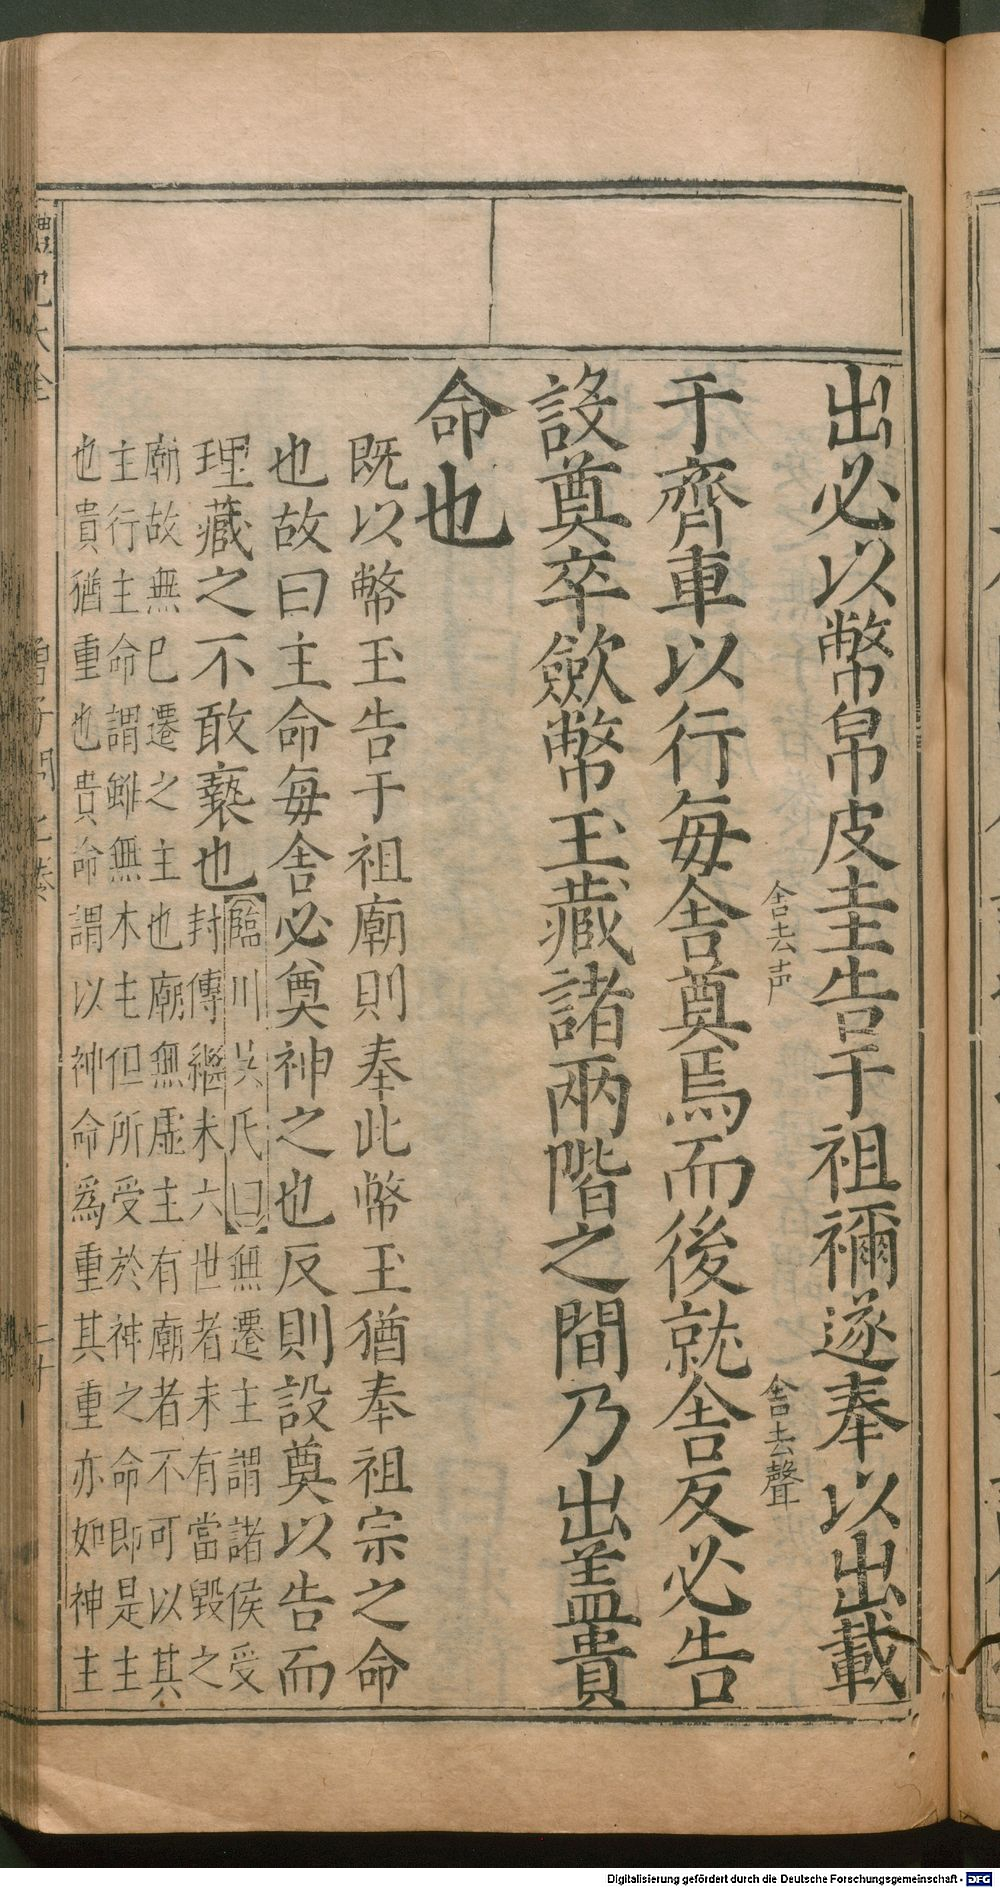 出必以幣帛皮圭告于祖禰遂奉以出載
于齊車以行每舍奠焉而後就舍反必告
舍去声
舍去聲
設奠卒歛幣玉藏諸兩階之間乃出盖貴
命也
既以幣玉告于祖廟則奉此幣玉猶奉祖宗之命
也故曰主命每舍必奠神之也反則設奠以告而
理藏之不敢褻也
臨川吳氏曰無遷主謂諸侯受
封傳繼未六世者未有當毀之
廟故無已遷之主也廟無虛主有廟者不可以其
主行主命謂雖無木主但所受於神之命即是主
也貴猶重也貴命謂以神命爲重其重亦如神主
禮記大全
曾子問 七卷
二十
Digitalisierung gefördert durch die Deutsche Forschungsgemeinschaft - DFG